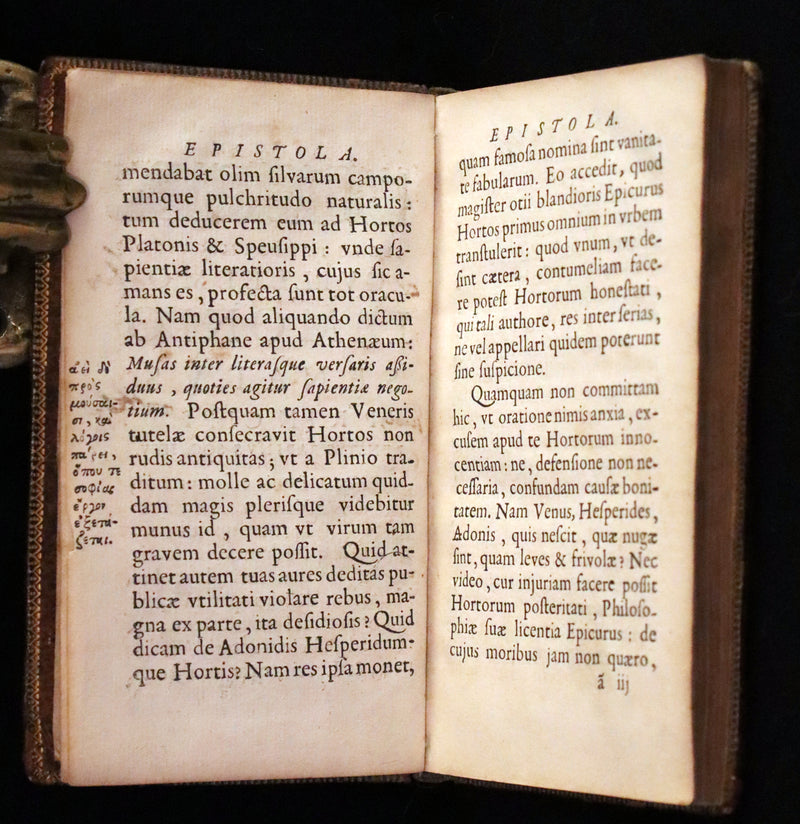 EPISTOLA.
mendabat olim ſilvarum campo-
rumque pulchritudo naturalis :
tum deducerem eum ad Hortos
Platonis & Speuſippi : vnde ſa-
pientiæ literatioris , cujus ſic a-
mans es , profecta ſunt tot oracu-
la. Nam quod aliquando dictum
ab Antiphane apud Athenæum:
Muſas inter literaſque verſaris aßi-
duus , quoties agitur ſapientiæ nego-
tium. Poſtquam tamen Veneris
tutelæ conſecravit Hortos non
rudis antiquitas ; vt a Plinio tra-
ditum : molle ac delicatum quid-
dam magis pleriſque videbitur
munus id , quam vt virum tam
gravem decere poſſit. Quid at-
tinet autem tuas aures deditas pu-
blicæ vtilitati violare rebus , ma-
gna ex parte , ita deſidioſis ? Quid
dicam de Adonidis Heſperidum-
que Hortis ? Nam res ipſa monet,
ἀεὶ δὲ
πρὸς
μούσαι-
σι , καὶ
λόγοις
πάρει ,
ὅπου τε
σοφίας
ἔργον
ἐξετά-
ζεται.
EPISTOLA.
quam famoſa nomina ſint vanita-
te fabularum. Eo accedit, quod
magiſter otii blandioris Epicurus
Hortos primus omnium in vrbem
tranſtulerit : quod vnum, vt de-
ſint cætera , contumeliam face-
re poteſt Hortorum honeſtati ,
qui tali authore , res inter ſerias,
ne vel appellari quidem poterunt
ſine ſuſpicione.
Quamquam non committam
hic , vt oratione nimis anxia , ex-
cuſem apud te Hortorum inno-
centiam : ne , defenſione non ne-
ceſſaria , confundam cauſæ boni-
tatem. Nam Venus, Heſperides,
Adonis , quis neſcit , quæ nugæ
ſint, quam leves & frivolæ ? Nec
video , cur injuriam facere poſſit
Hortorum poſteritati , Philoſo-
phiæ ſuæ licentia Epicurus : de
cujus moribus jam non quæro ,
ã iij